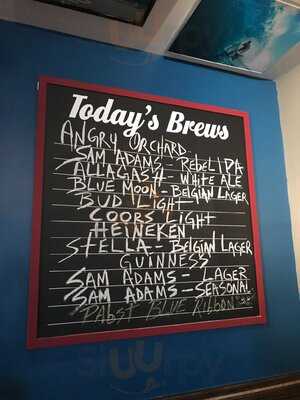 Today's Brews
ANGRY ORCHARD
SAM ADAMS - REBEL IPA
ALLAGASH - WHITE ALE
BLUE MOON - BELGIAN LAGER
BUD LIGHT
COORS LIGHT
HEINEKEN
STELLA - BELGIAN LAGER
GUINNESS
SAM ADAMS - LAGER
SAM ADAMS - SEASONAL
PABST BLUE RIBBON